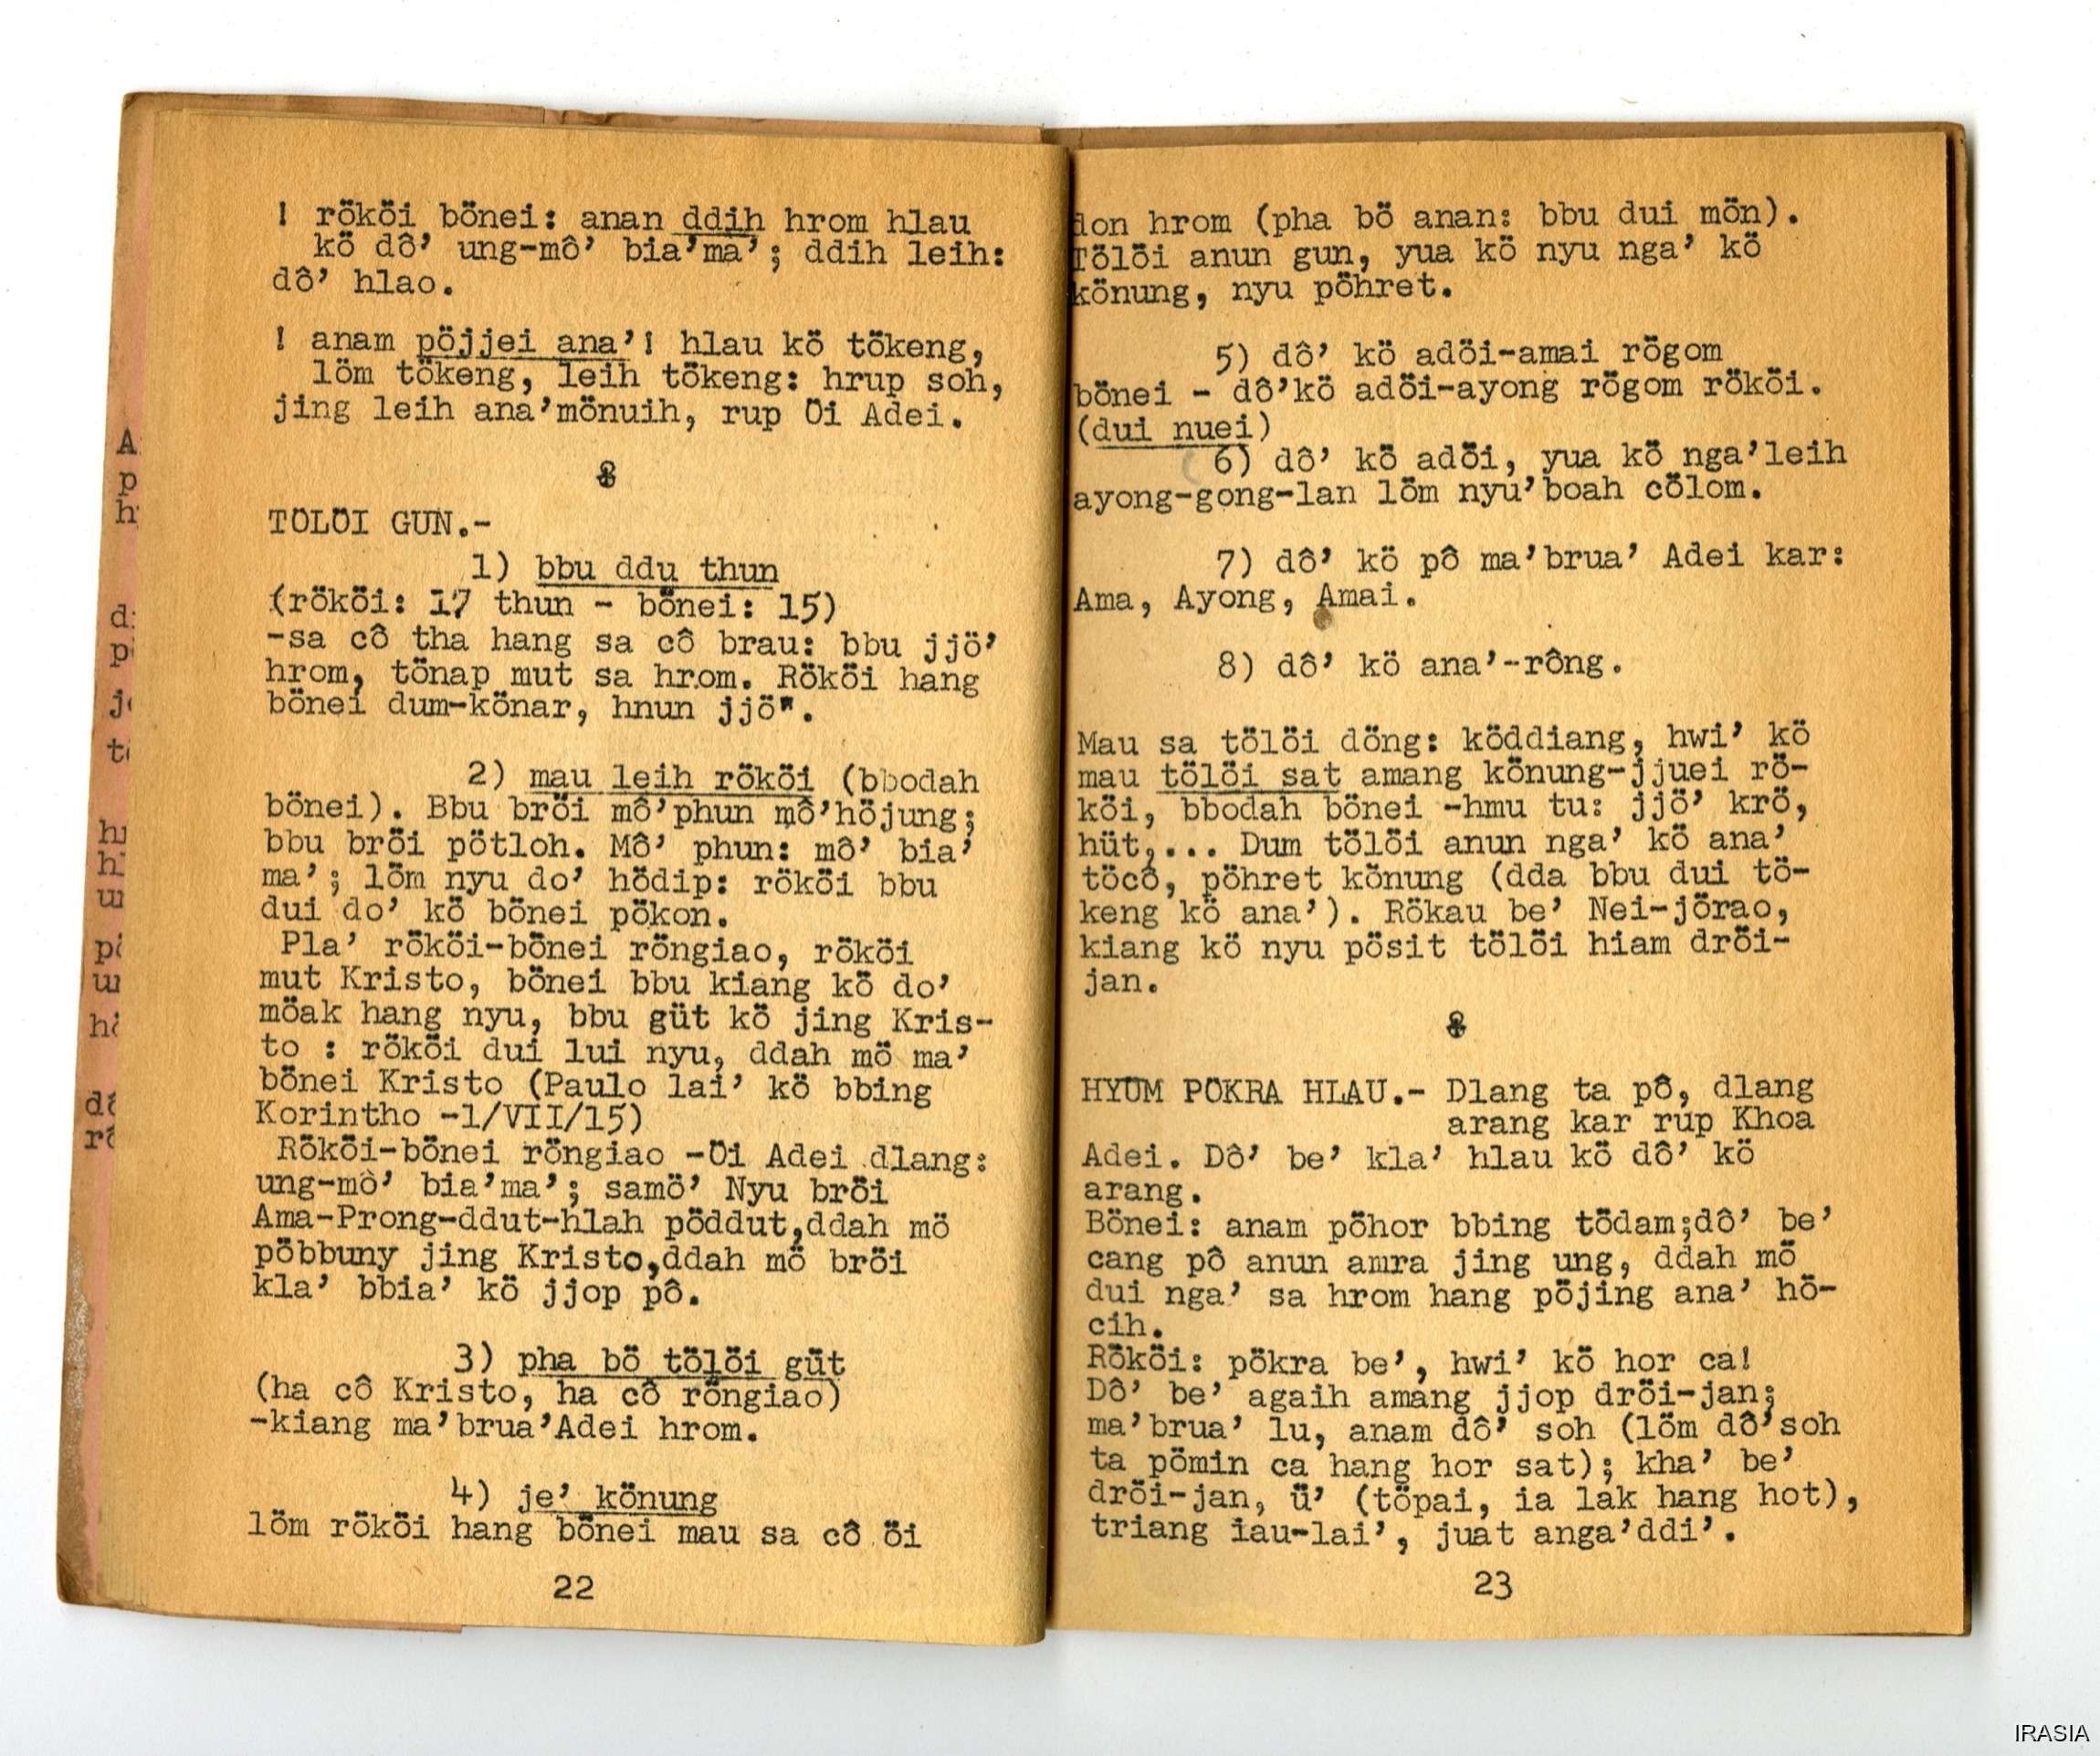 ! rököi bönei: anan ddih hrom hlau
kö dô’ ung-mô’ bia’ma’; ddih leih:
dô’ hlao.
! anam pöjjei ana’! hlau kö tökeng,
löm tökeng, leih tökeng: hrup soh,
jing leih ana’mönuih, rup Öi Adei.
TÖLÖI GUN.-
1) bbu ddu thun
(rököi: 17 thun - bönei: 15)
-sa cô tha hang sa cô brau: bbu jjö’
hrom, tönap mut sa hrom. Rököi hang
bönei dum-könar, hnun jjö".
2) mau leih rököi (bbodah
bönei). Bbu bröi mô’phun mô’höjung;
bbu bröi pötloh. Mô’ phun: mô’ bia’
ma’; löm nyu do’ hödip: rököi bbu
dui do’ kö bönei pökon.
Pla’ rököi-bönei röngiao, rököi
mut Kristo, bönei bbu kiang kö do’
möak hang nyu, bbu güt kö jing Kris-
to : rököi dui lui nyu, ddah mö ma’
bönei Kristo (Paulo lai’ kö bbing
Korintho -1/VII/15)
Rököi-bönei röngiao -Öi Adei dlang:
ung-mô’ bia’ma’; samö’ Nyu bröi
Ama-Prong-ddut-hlah pöddut,ddah mö
pöbbuny jing Kristo,ddah mö bröi
kla’ bbia’ kö jjop pô.
3) pha bö tölöi güt
(ha cô Kristo, ha cô röngiao)
-kiang ma’brua’Adei hrom.
4) je’ könung
löm rököi hang bönei mau sa cô öi
22
don hrom (pha bö anan: bbu dui mön).
Tölöi anun gun, yua kö nyu nga’ kö
könung, nyu pöhret.
5) dô’ kö adöi-amai rögom
bönei - dô’kö adöi-ayong rögom rököi.
(dui nuei)
6) dô’ kö adöi, yua kö nga’leih
ayong-gong-lan löm nyu’boah cölom.
7) dô’ kö pô ma’brua’ Adei kar:
Ama, Ayong, Amai.
8) dô’ kö ana’-rông.
Mau sa tölöi döng: köddiang, hwi’ kö
mau tölöi sat amang könung-jjuei rö-
köi, bbodah bönei -hmu tu: jjö’ krö,
hüt,... Dum tölöi anun nga’ kö ana’
töcô, pöhret könung (dda bbu dui tö-
keng kö ana’). Rökau be’ Nei-jörao,
kiang kö nyu pösit tölöi hiam dröi-
jan.
HYUM PÖKRA HLAU.- Dlang ta pô, dlang
arang kar rup Khoa
Adei. Dô’ be’ kla’ hlau kö dô’ kö
arang.
Bönei: anam pöhor bbing tödam;dô’ be’
cang pô anun amra jing ung, ddah mö
dui nga’ sa hrom hang pöjing ana’ hö-
cih.
Rököi: pökra be’, hwi’ kö hor ca!
Dô’ be’ agaih amang jjop dröi-jan;
ma’brua’ lu, anam dô’ soh (löm dô’soh
ta pömin ca hang hor sat); kha’ be’
dröi-jan, ü’ (töpai, ia lak hang hot),
triang iau-lai’, juat anga’ddi’.
23
IRASIA